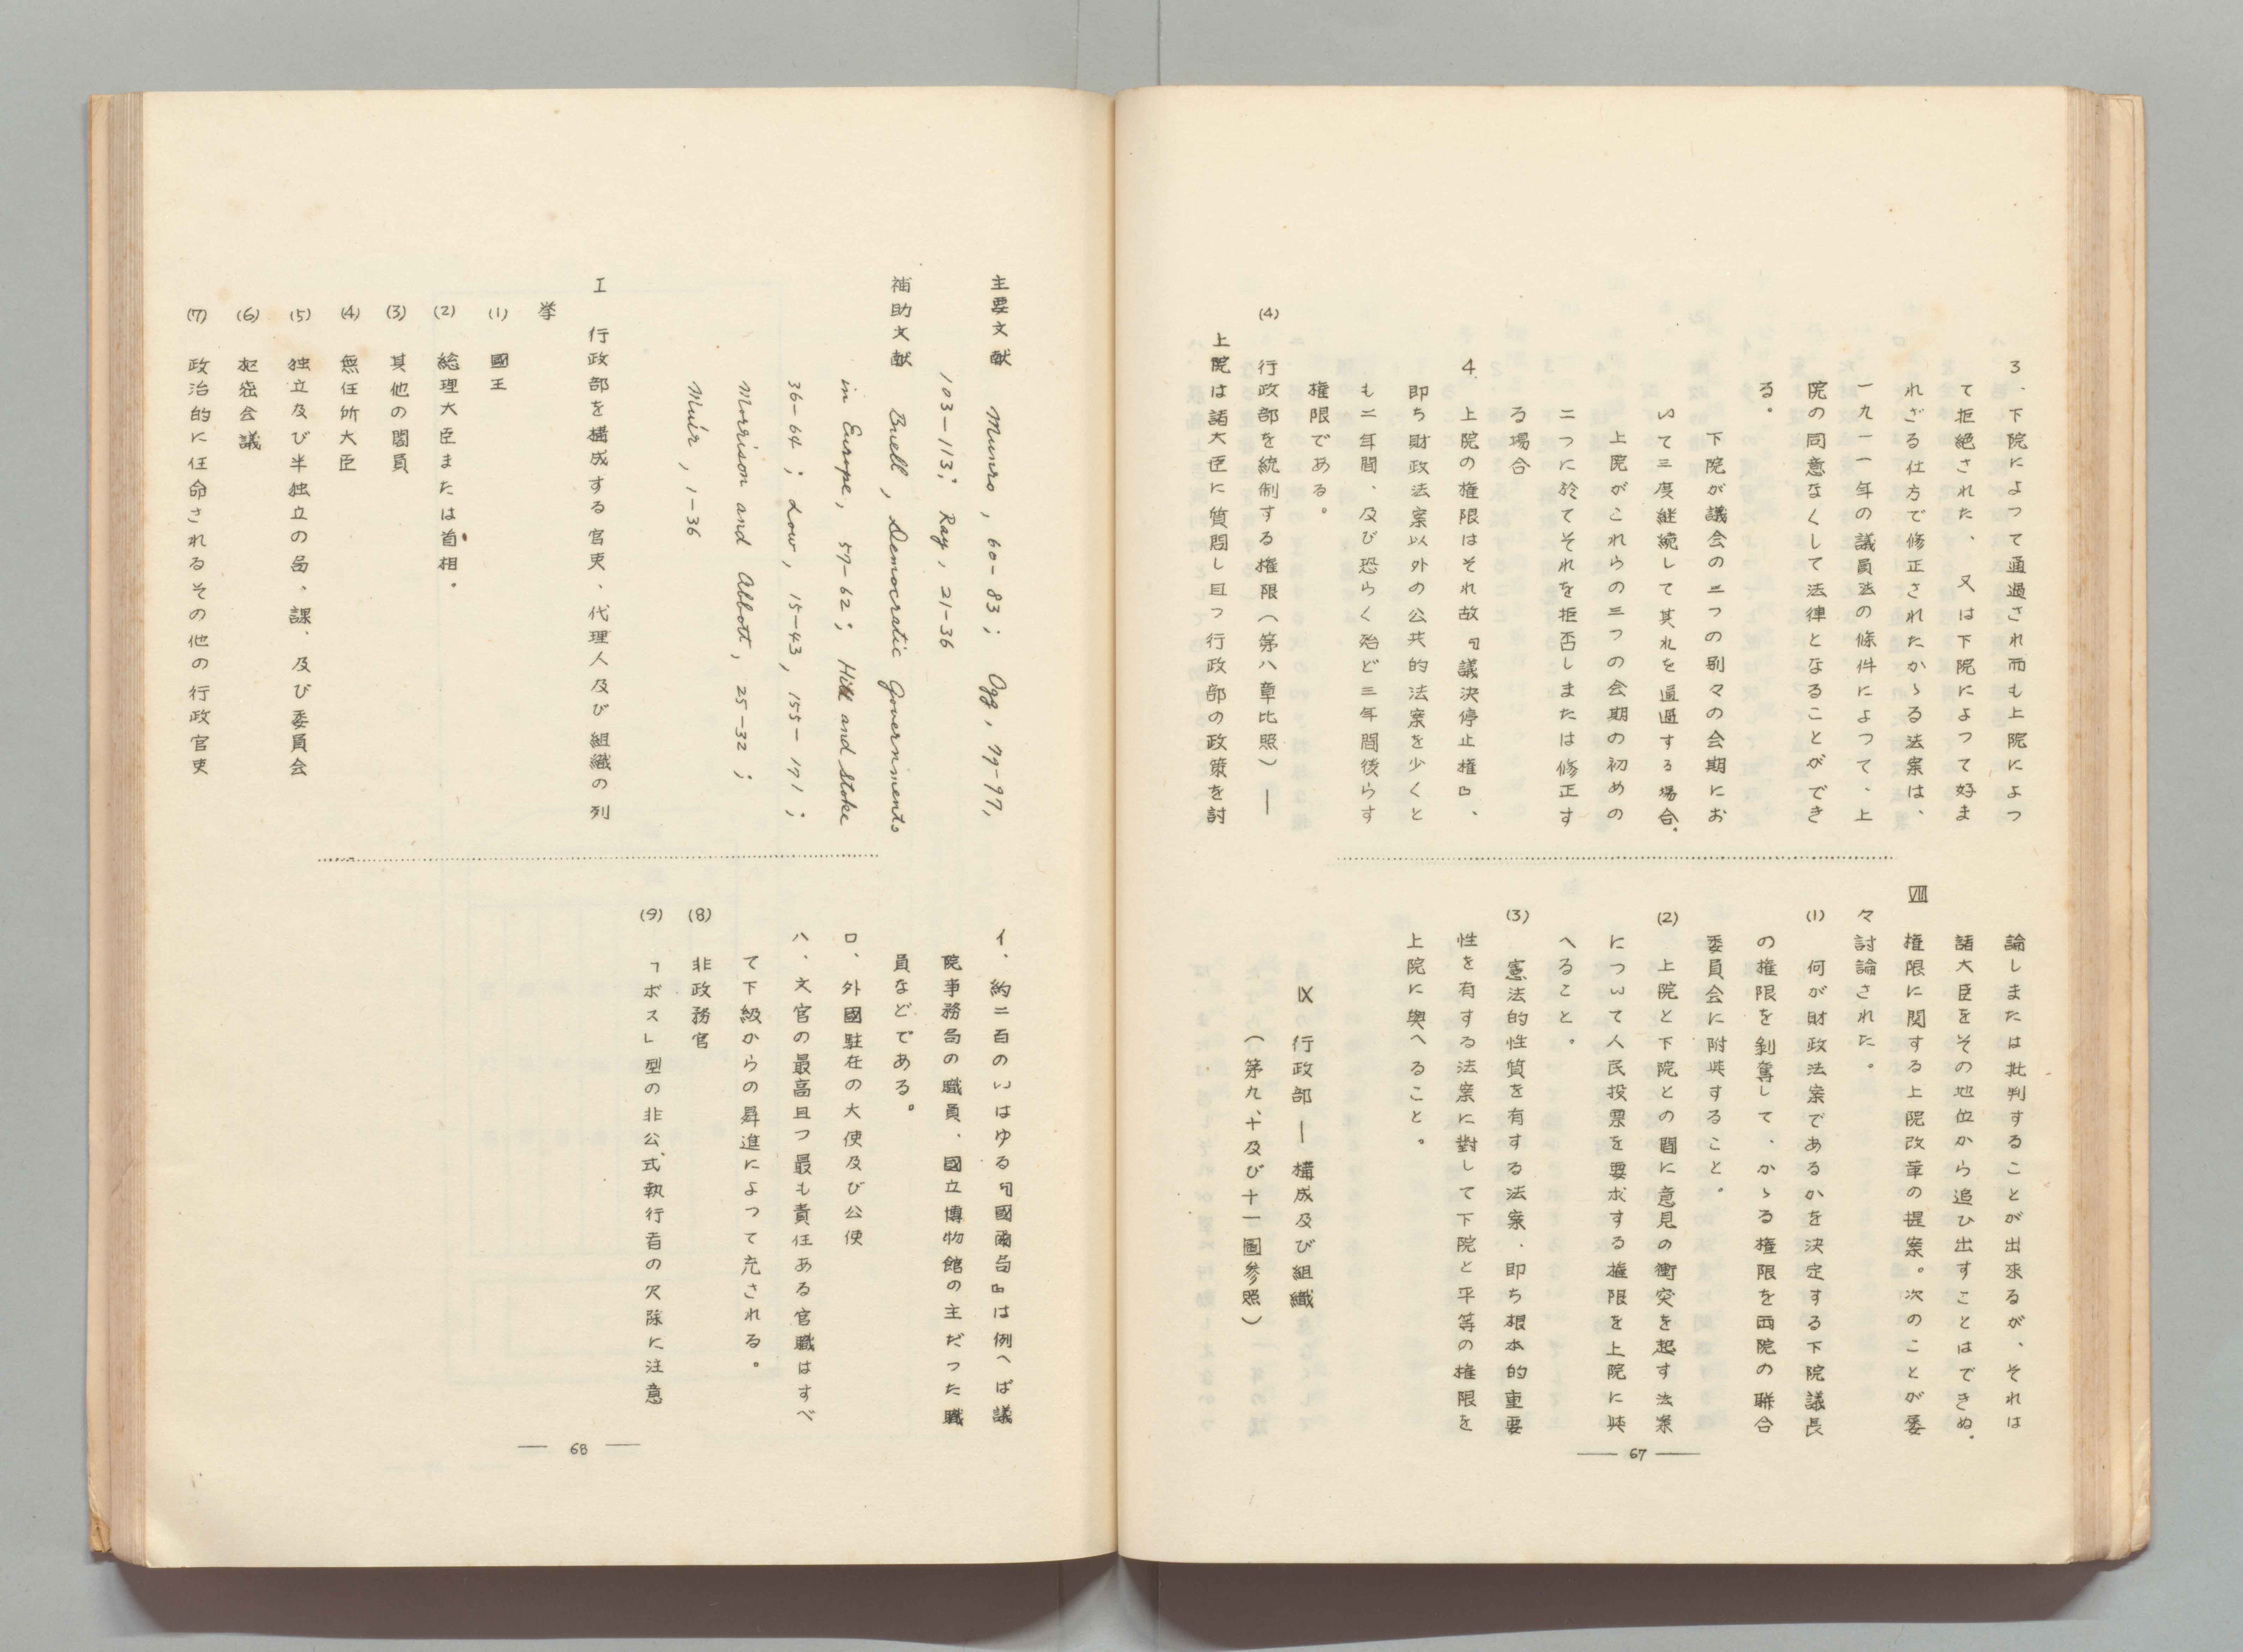 3、下院によつて通過され而も上院によつ
て拒絶された、又は下院によつて好ま
れざる仕方で修正されたかゝる法案は、
一九一一年の議員法の條件によつて、上
院の同意なくして法律となることができ
る。
下院が議会の二つの別々の会期にお
いて三度継続して其れを通過する場合、
上院がこれらの三つの会期の初めの
二つに於てそれを拒否しまたは修正す
る場合
4. 上院の権限はそれ故『議決停止権』、
即ち財政法案以外の公共的法案を少くと
も二年間、及び恐らく殆ど三年間後らす
権限である。
(4) 行政部を統制する権限(第八章比照)—
上院は諸大臣に質問し且つ行政部の政策を討
論しまたは批判することが出來るが、それは
諸大臣をその地位から追ひ出すことはできぬ。
Ⅷ 権限に関する上院改革の提案。次のことが屡
々討論された。
(1) 何が財政法案であるかを決定する下院議長
の権限を剝奪して、かゝる権限を両院の聯合
委員会に附與すること。
(2) 上院と下院との間に意見の衝突を起す法案
について人民投票を要求する権限を上院に與
へること。
(3) 憲法的性質を有する法案、即ち根本的重要
性を有する法案に對して下院と平等の権限を
上院に與へること。
Ⅸ 行政部—構成及び組織
(第九、十及び十一圖參照)
— 67 —
主要文献 Munro, 60-83; Ogg, 79-97,
103-113; Ray, 21-36
補助文献 Buell, Democratic Governments
in Europe, 57-62; Hill and Stoke
36-64; Low, 15-43, 155-171;
Morrison and Abbott, 25-32;
Muir, 1-36
Ⅰ 行政部を構成する官吏、代理人及び組織の列
挙
(1) 國王
(2) 総理大臣または首相。
(3) 其他の閣員
(4) 無任所大臣
(5) 独立及び半独立の局、課、及び委員会
(6) 枢密会議
(7) 政治的に任命されるその他の行政官吏
イ、約二百のいはゆる『國爾局』は例へば議
院事務局の職員、國立博物館の主だつた職
員などである。
ロ、外國駐在の大使及び公使
ハ、文官の最高且つ最も責任ある官職はすべ
て下級からの昇進によつて充される。
(8) 非政務官
(9) 「ボス」型の非公式執行者の欠除に注意
— 68 —